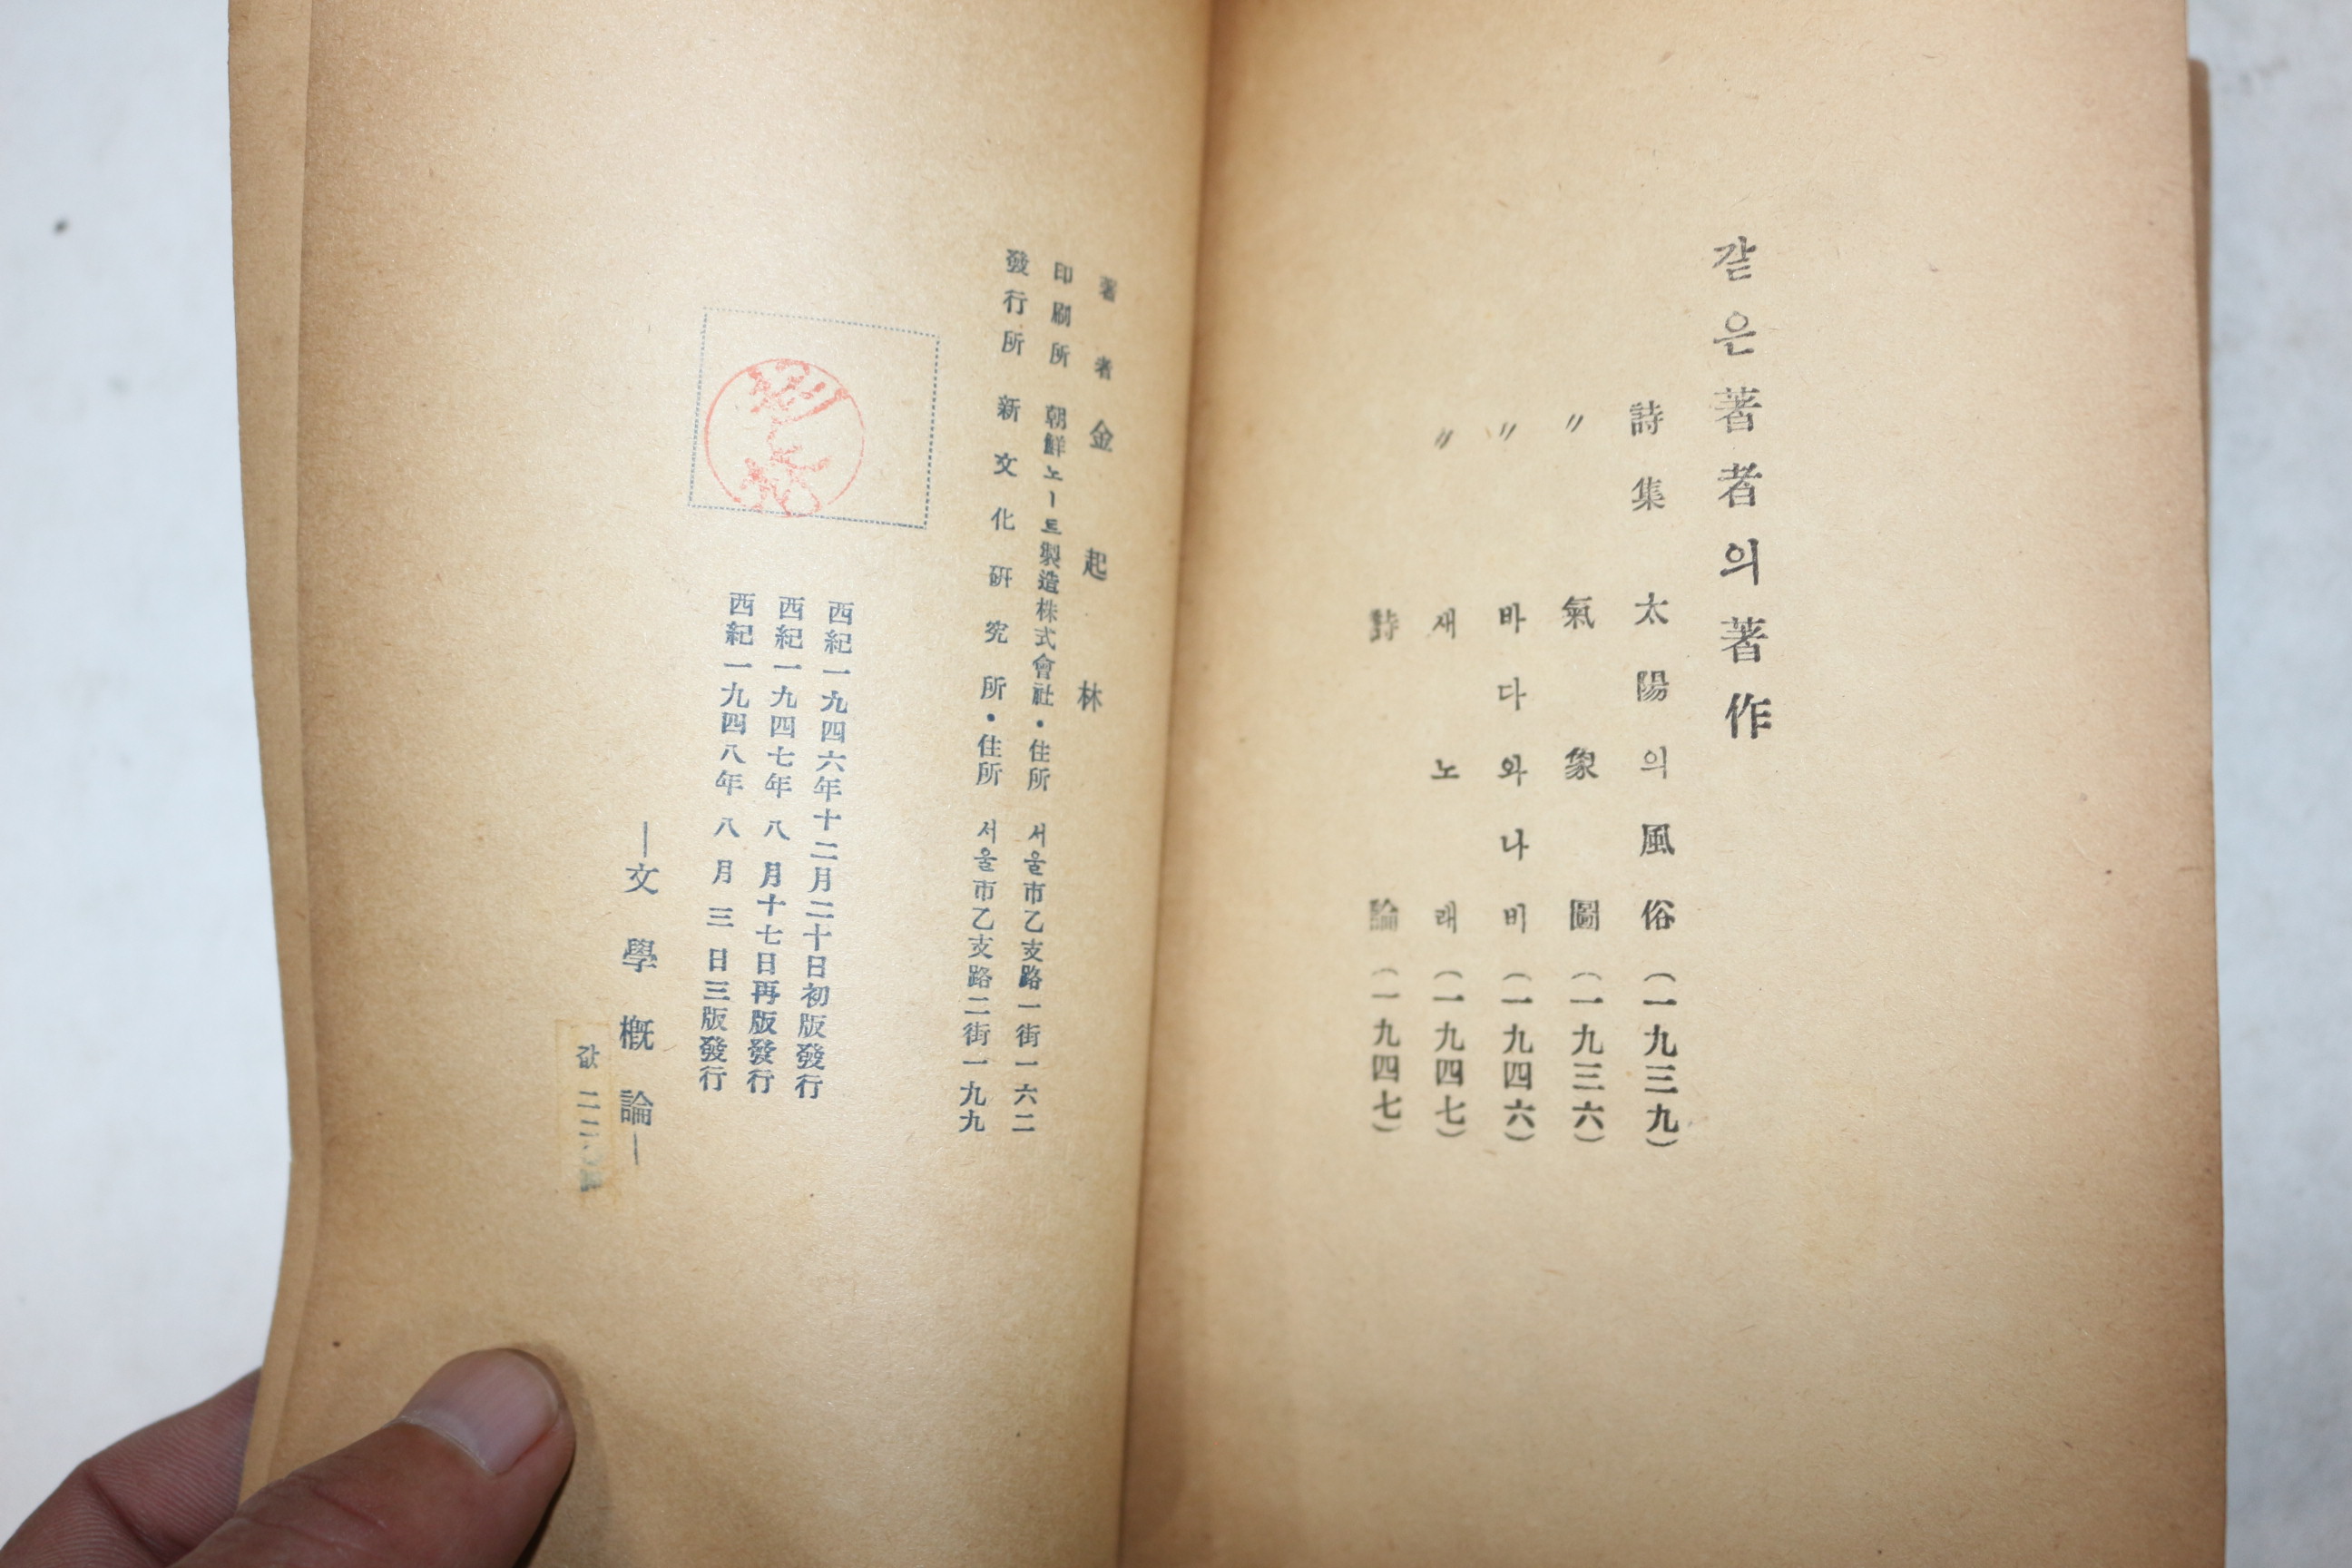 갇은著者의著作
詩集 太陽의風俗 (一九三九)
〃 氣象圖 (一九三六)
〃 바다와나비 (一九四六)
〃 새노래 (一九四七)
詩論 (一九四七)
著者 金起林
印刷所 朝鮮노ー트製造株式會社・住所 서울市乙支路一街一六二
發行所 新文化硏究所・住所 서울市乙支路二街一九九
西紀一九四六年十二月二十日初版發行
西紀一九四七年八月十七日再版發行
西紀一九四八年八月三日三版發行
―文學槪論―
값 二二